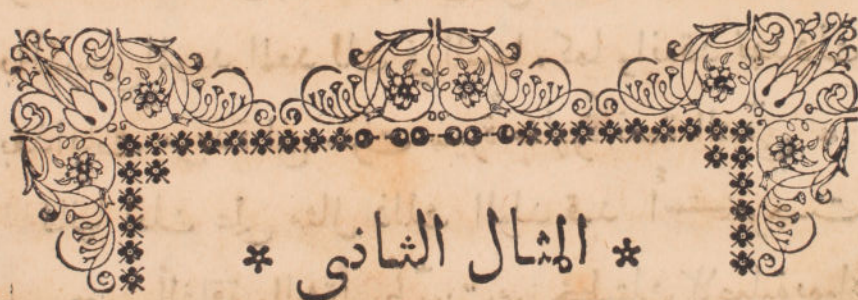 * المثال الثاني *